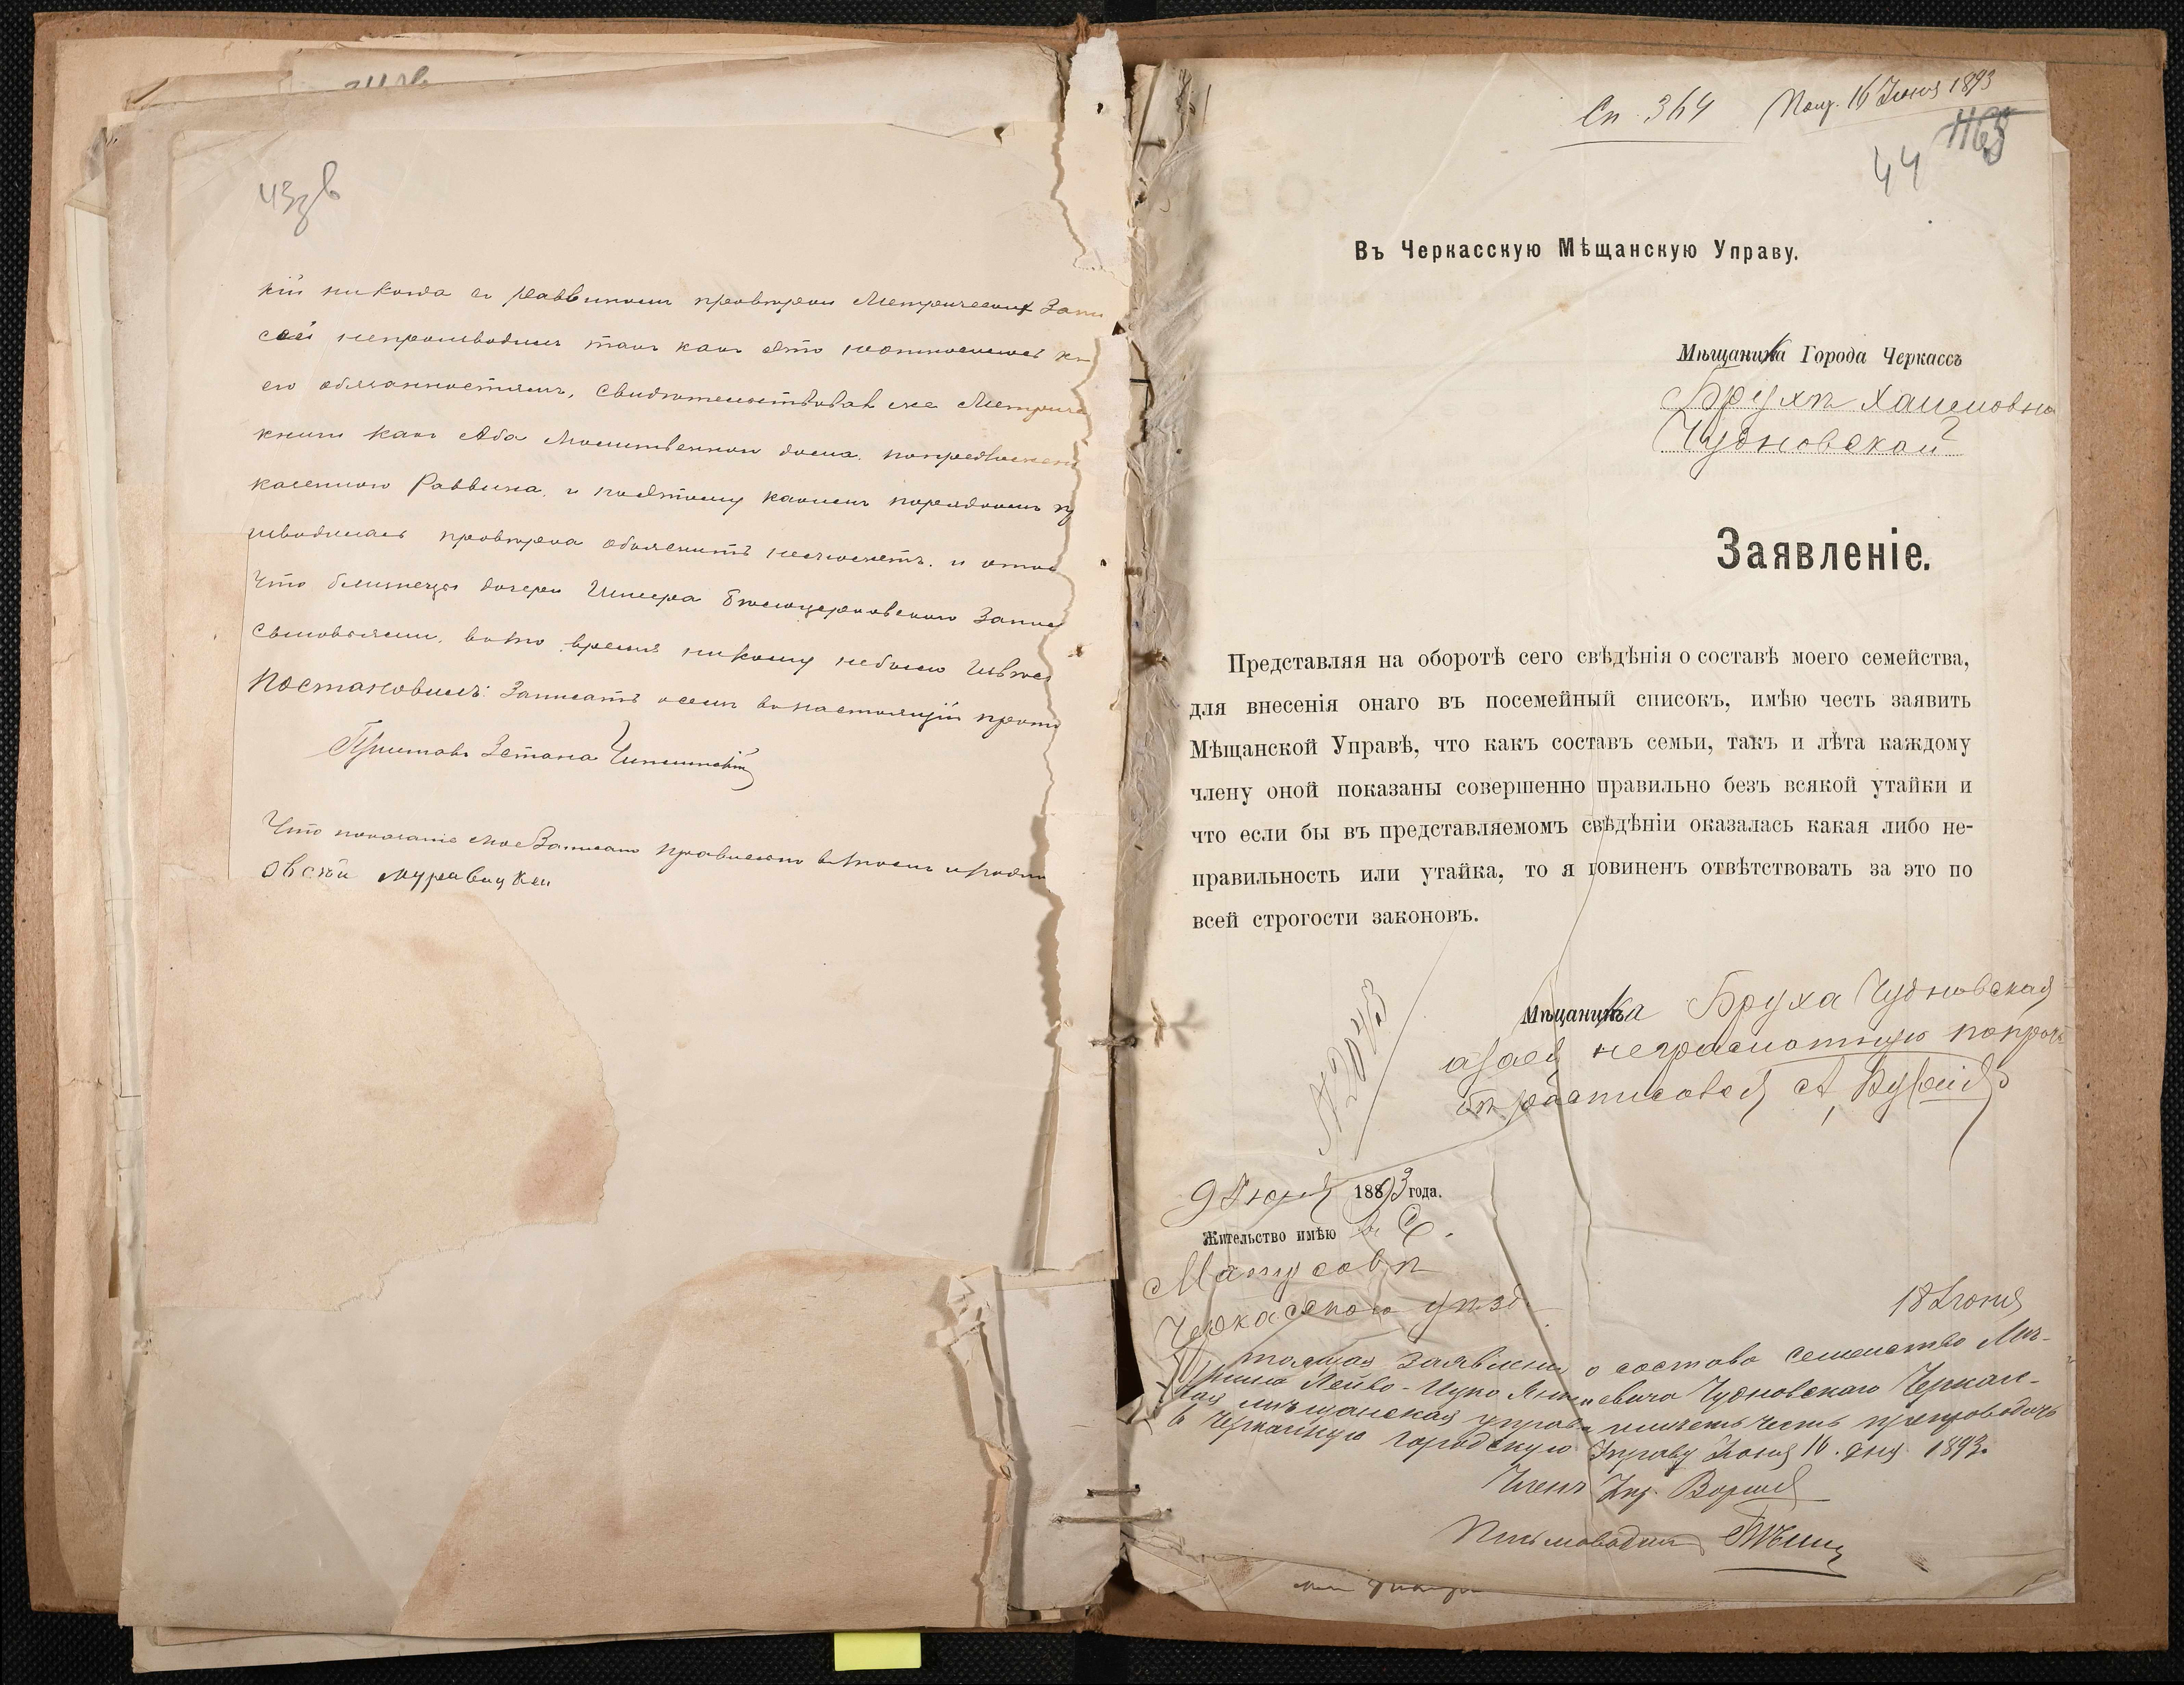 43 об
кій никогда съ Раввиномъ провѣрки Метрическихъ Запи
сей непроизводилъ такъ какъ это неотносилось къ
его обязанностямъ, свидѣтельствовалъ же Метриче
книги какъ Аба Молитвеннаго дома,
казеннаго Раввина, и поэтому какимъ порядкомъ пр
изводилась провѣрка объяснить неможетъ, и о томъ
что близнецы дочери Шмера Бѣлоцерковскаго Записа
сыновьями, въ то время никому небыло извѣс
Постановилъ: Записать осемъ въ настоящій прото
Приставъ 2 стана
Что показаніе мое Записано правильно въ томъ и
Овсѣй Муравицкій
Сп. 364 Пол. 16 Іюня 1893
44
Въ Черкасскую Мѣщанскую Управу.
Мѣщаника Города Черкассъ
Брухи Хаимовны
Чудновской
Заявленіе.
Представляя на оборотѣ сего свѣдѣнія о составѣ моего семейства,
для внесенія онаго въ посемейный списокъ, имѣю честь заявить
Мѣщанской Управѣ, что какъ составъ семьи, такъ и лѣта каждому
члену оной показаны совершенно правильно безъ всякой утайки и
что если бы въ представляемомъ свѣдѣніи оказалась какая либо не-
правильность или утайка, то я повиненъ отвѣтствовать за это по
всей строгости законовъ.
Мѣщанка Бруха Чудновская
а за ей неграмотную по прозь
бѣ росписовался А.
№ 2043
9 Іюня 1893 года.
Жительство имѣю въ С.
Матусовѣ
Черкаского уѣзд.
18 Іюня
заявленіе о составѣ семейства Мѣ-
щанина Лейбо-Ицко Чудновскаго Черкас-
кая мѣщанская управа имѣетъ честь препроводить
в Черкаскую городскую Управу Іюня 16. дня 1893.
Членъ Упр.
Письмоводит